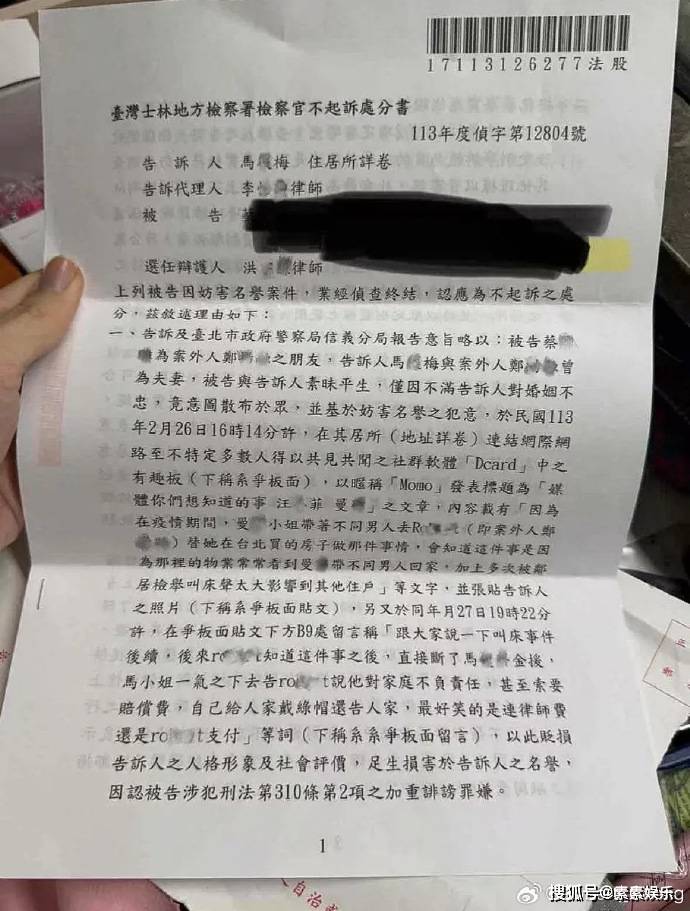 17113126277法股
臺灣士林地方檢察署檢察官不起訴處分書
113年度偵字第12804號
告訴人 馬 梅 住居所詳卷
告訴代理人 李 律師
被告
選任辯護人 洪 律師
上列被告因妨害名譽案件，業經偵查終結，認應為不起訴之處
分，茲敘述理由如下：
一、告訴及臺北市政府警察局信義分局報告意旨略以：被告蔡
為案外人鄭 之朋友，告訴人馬 梅與案外人鄭 曾
為夫妻，被告與告訴人素昧平生，僅因不滿告訴人對婚姻不
忠，竟意圖散布於眾，並基於妨害名譽之犯意，於民國113
年2月26日16時14分許，在其居所（地址詳卷）連結網際網
路至不特定多數人得以共見共聞之社群軟體「Dcard」中之
有趣板（下稱系爭板面），以暱稱「Momo」發表標題為「媒
體你們想知道的事 汪 菲 曼 」之文章，內容載有「因為
在疫情期間，曼 小姐帶著不同男人去Ro （即案外人鄭
）替她在台北買的房子做那件事情，會知道這件事是因
為那裡的物業常常看到曼 帶不同男人回家，加上多次被鄰
居檢舉叫床聲太大影響到其他住戶」等文字，並張貼告訴人
之照片（下稱系爭板面貼文），另又於同年月27日19時22分
許，在爭板面貼文下方B9處留言稱「跟大家說一下叫床事件
後續，後來ro t知道這件事之後，直接斷了馬 金後，
馬小姐一氣之下去告ro t說他對家庭不負責任，甚至索要
賠償費，自己給人家戴綠帽還告人家，最好笑的是連律師費
還是ro t支付」等詞（下稱系系爭板面留言），以此貶損
告訴人之人格形象及社會評價，足生損害於告訴人之名譽，
因認被告涉犯刑法第310條第2項之加重誹謗罪嫌。
1
搜狐号@素素娱乐